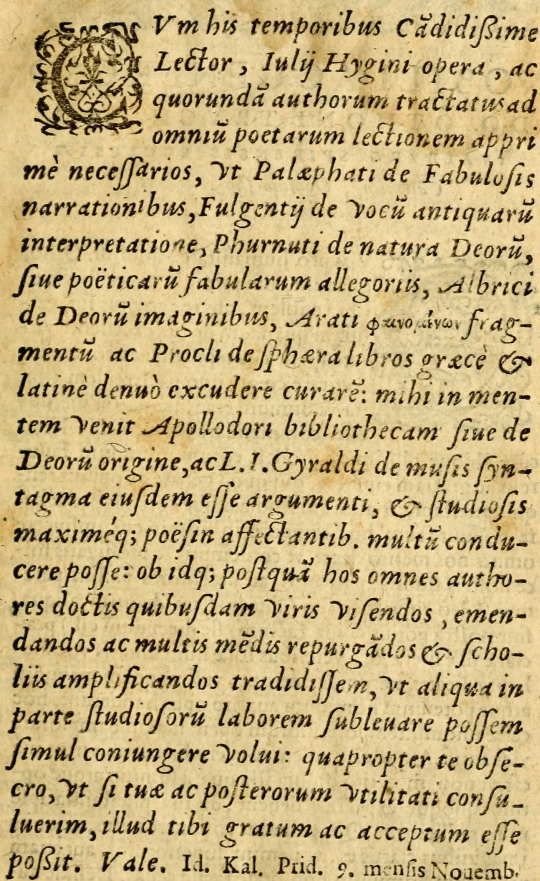 CVm his temporibus Cãdidißime
Lector, Iulij Hygini opera, ac
quorundã authorum tractatus ad
omniũ poetarum lectionem appri
mè neceſſarios, vt Palæphati de Fabuloſis
narrationibus, Fulgentij de vocũ antiquarũ
interpretatione, Phurnuti de natura Deorũ,
ſiue poëticarũ fabularum allegoriis, Albrici
de Deorũ imaginibus, Arati φαινομένων frag-
mentũ ac Procli de ſphæra libros græcè &
latinè denuò excudere curarẽ: mihi in men-
tem venit Apollodori bibliothecam ſiue de
Deorũ origine, ac L. I. Gyraldi de muſis ſyn-
tagma eiuſdem eſſe argumenti, & ſtudioſis
maximéq; poëſin affectantib. multũ condu-
cere poſſe: ob idq; poſtquã hos omnes autho-
res doctis quibuſdam viris viſendos, emen-
dandos ac multis mẽdis repurgãdos & ſcho-
liis amplificandos tradidiſſem, vt aliqua in
parte ſtudioſorũ laborem ſubleuare poſſem
ſimul coniungere volui: quapropter te obſe-
cro, vt ſi tuæ ac poſterorum vtilitati conſu-
luerim, illud tibi gratum ac acceptum eſſe
poßit. Vale. Id. Kal. Prid. 9. menſis Nouemb.